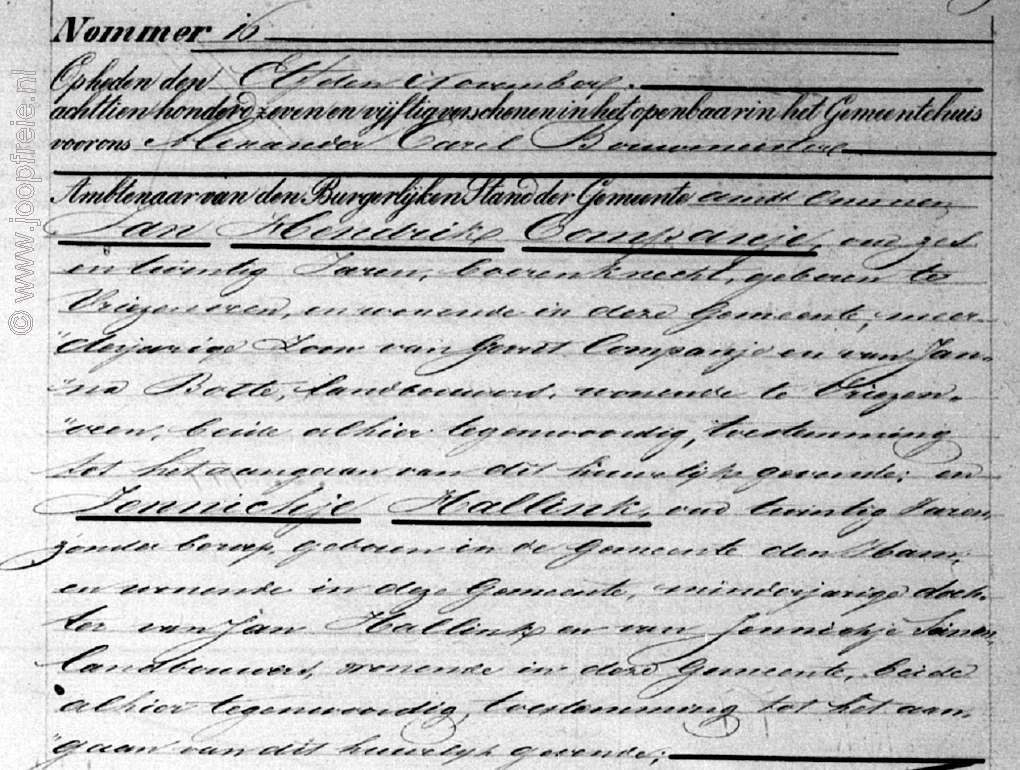 Nommer 16
Opheden den Elfden November
achttien honderd zeven en vijftig verschenen in het openbaar in het Gemeentehuis
voor ons Alexander Carel Bouwmeester
Ambtenaar van den Burgerlijken Stand der Gemeente ambt Ommen
Jan Hendrik Companje, oud zes
en twintig Jaren, boerenknecht, geboren te
Vriezenveen, en wonende in deze Gemeente, meer-
"derjarige Zoon van Gerrit Companje en van Jan-
"na Botte, landbouwers, wonende te Vriezen-
"veen, beide alhier tegenwoordig, toestemming
tot het aangaan van dit huwelijk gevende; en
Jennichje Hallink, oud twintig Jaren,
zonder beroep, geboren in de Gemeente den Ham,
en wonende in deze Gemeente, minderjarige doch-
ter van Jan Hallink en van Jennichje
landbouwers, wonende in deze Gemeente, beide
alhier tegenwoordig, toestemming tot het aan-
"gaan van dit huwelijk gevende;
© www.joopfreie.nl